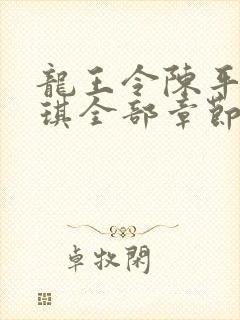 龍王令陳平
琪全部章節
卓牧閑